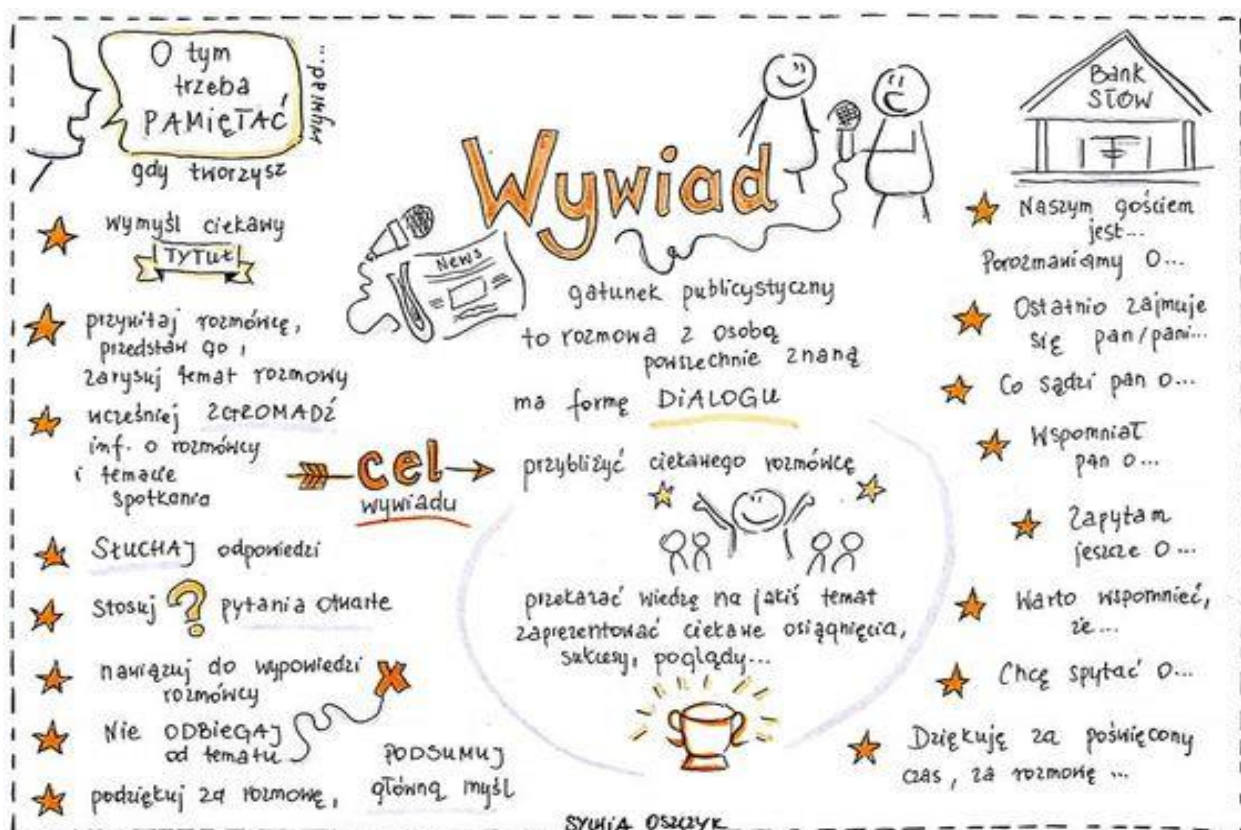 O tym
trzeba
PAMIĘTAĆ
gdy tworzysz
wywiad...
wymyśl ciekawy
TYTUŁ
przywitaj rozmówcę,
przedstaw go,
zarysuj temat rozmowy
wcześniej ZGROMADŹ
inf. o rozmówcy
i temacie
spotkania
SŁUCHAJ odpowiedzi
stosuj ? pytania otwarte
nawiązuj do wypowiedzi
rozmówcy
Nie ODBIEGAJ
od tematu
podziękuj za rozmowę,
PODSUMUJ
główną myśl
Wywiad
News
gatunek publicystyczny
to rozmowa z osobą
powszechnie znaną
ma formę DIALOGU
cel
wywiadu
przybliżyć ciekawego rozmówcę
przekazać wiedzę na jakiś temat
zaprezentować ciekawe osiągnięcia,
sukcesy, poglądy...
Bank
SŁÓW
Naszym gościem
jest...
Porozmawiamy o...
Ostatnio zajmuje
się pan/pani...
Co sądzi pan o...
Wspomniał
pan o...
Zapytam
jeszcze o...
Warto wspomnieć,
że...
Chcę spytać o...
Dziękuję za poświęcony
czas, za rozmowę ...
SYLWIA OSZCZYK